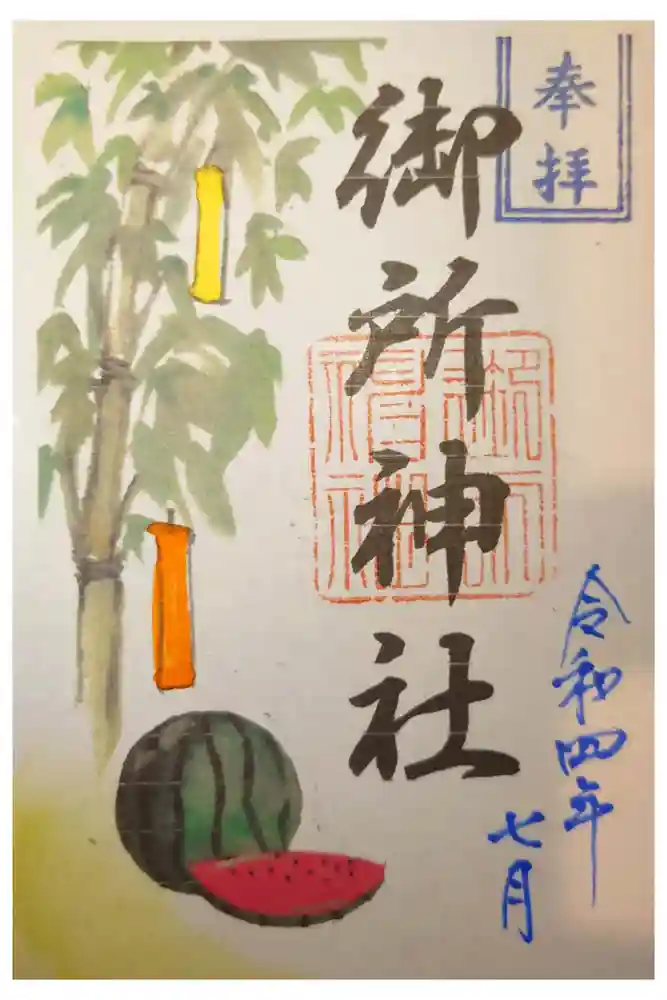 奉拝
御所神社
令和四年
七月